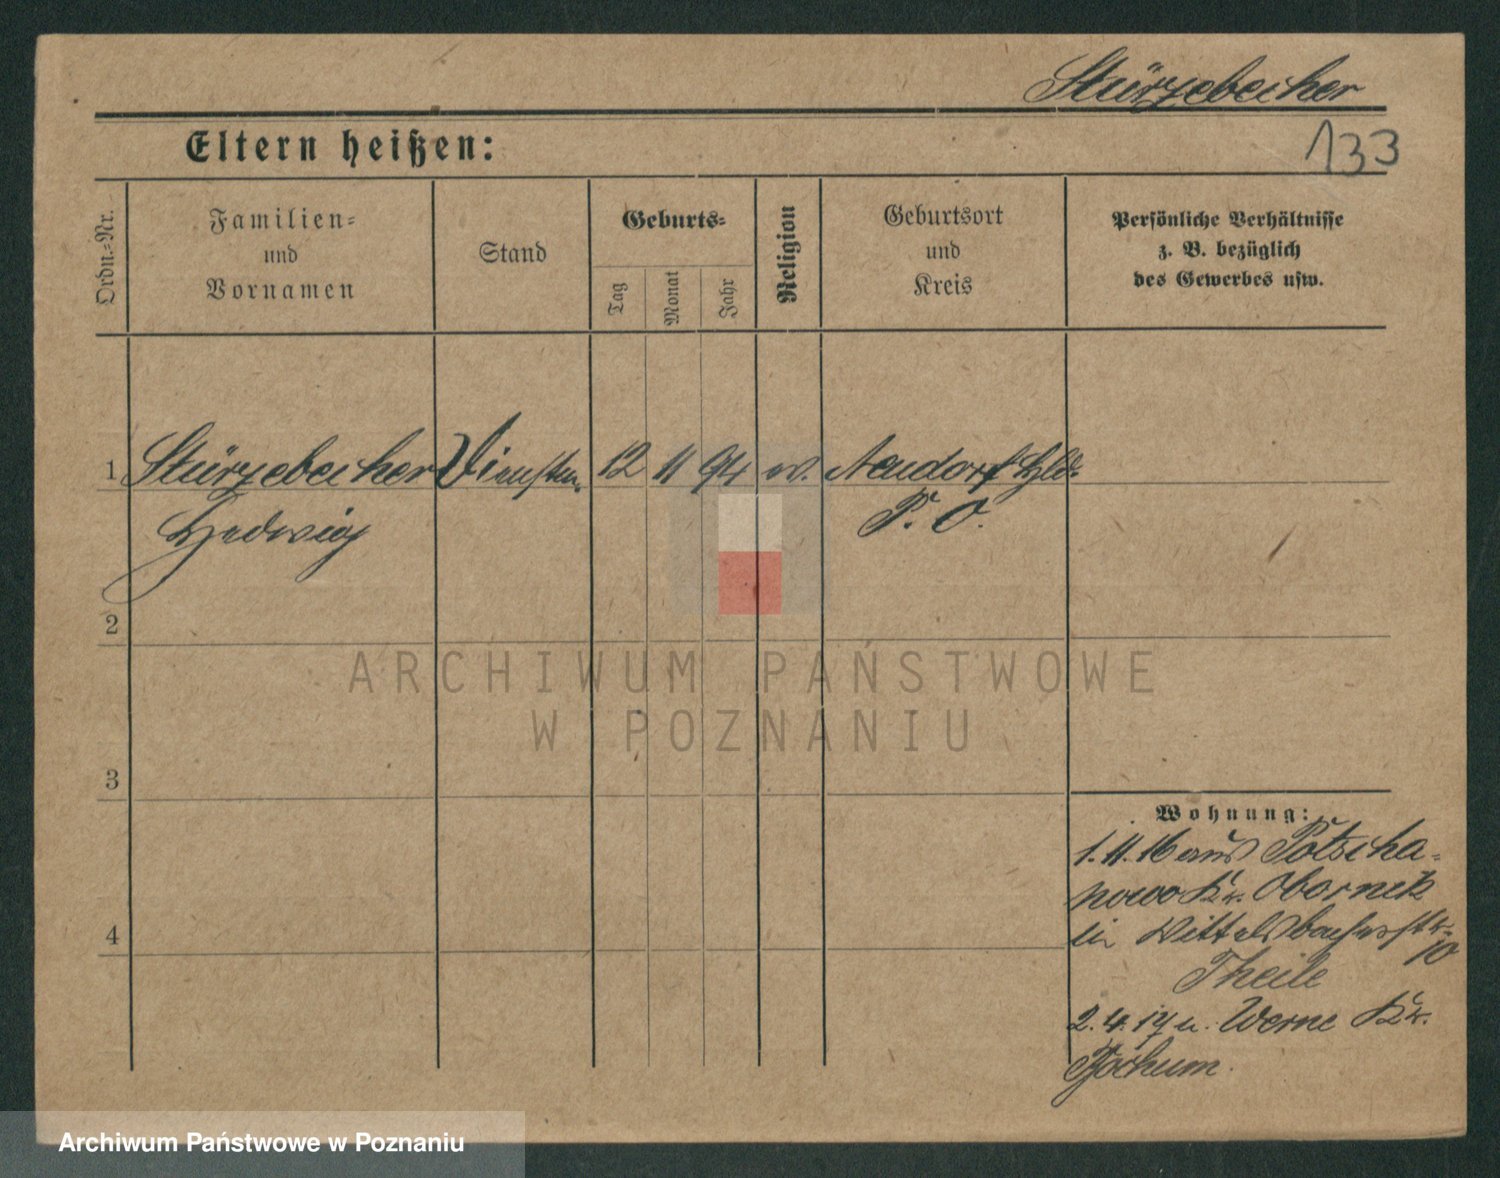 Stürzebecher
Eltern heißen:
133
Ordn.=Nr.
Familien=
und
Vornamen
Stand
Geburts=
Tag
Monat
Jahr
Religion
Geburtsort
und
Kreis
Persönliche Verhältnisse
z. B. bezüglich
des Gewerbes usw.
1 Stürzebecher Dienstm. 12 11 94 ev. Neudorf Hld.
Hedwig P. O.
2
ARCHIWUM PAŃSTWOWE
W POZNANIU
3
Wohnung:
1.11.16 aus Potscha=
nowo Kr. Obornik
in Wittelsbacherstr.
10
Theile
4
2.4.17 n. Werne Kr.
Bochum.
Archiwum Państwowe w Poznaniu